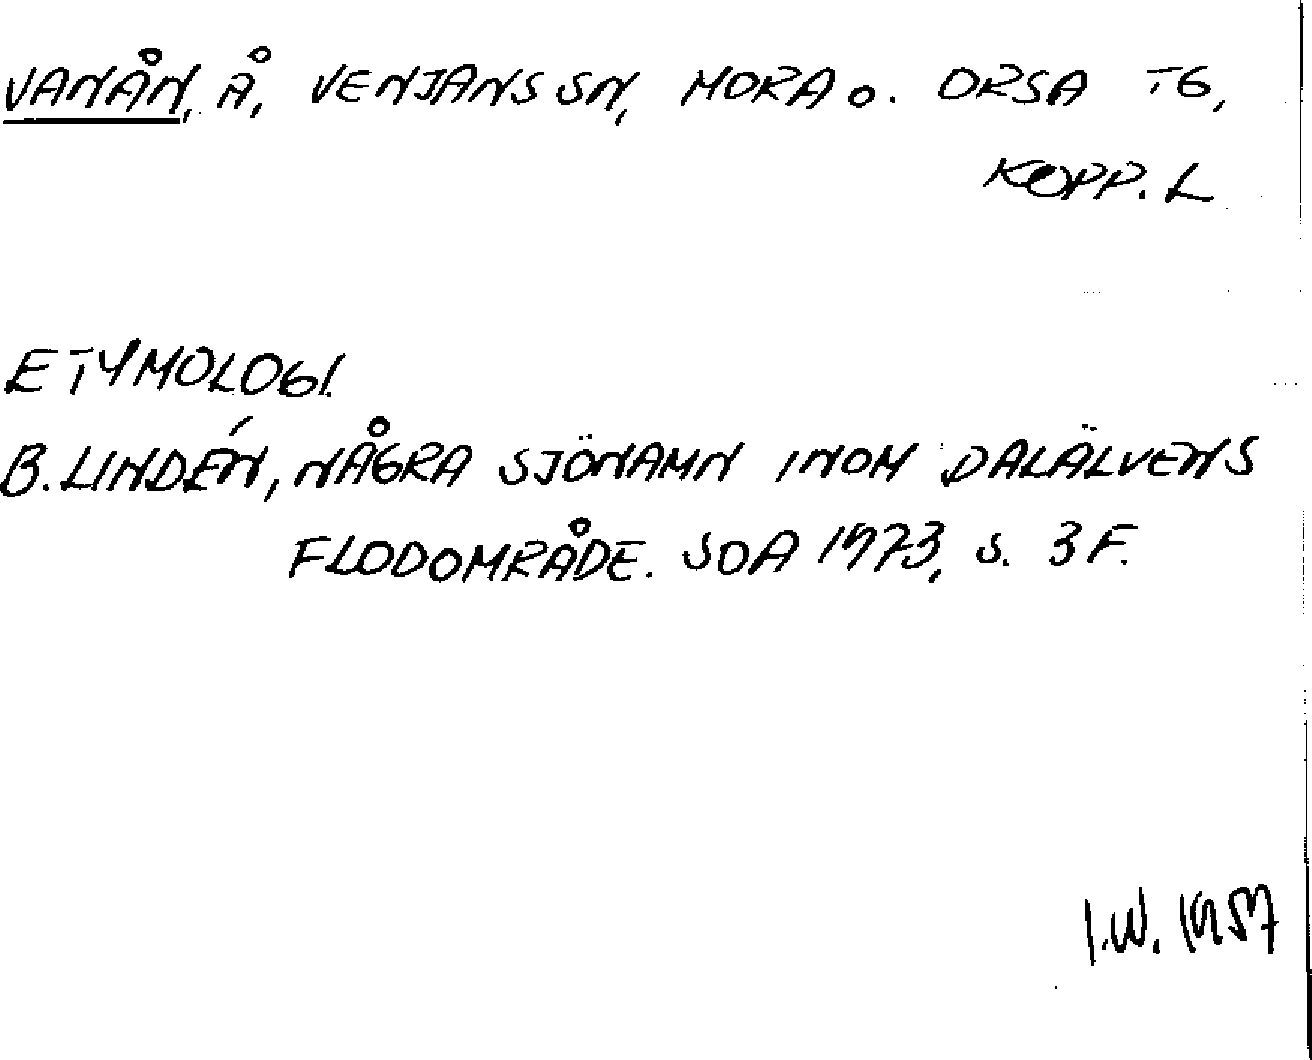 VANÅN, Å, VENJANS SN, MORA O. ORSA TG,
KOPP. L
ETYMOLOGI.
B. LINDÉN, NÅGRA SJÖNAMN INOM DALÄLVENS
FLODOMRÅDE. SOA 1973, S. 3 F.
I.W.